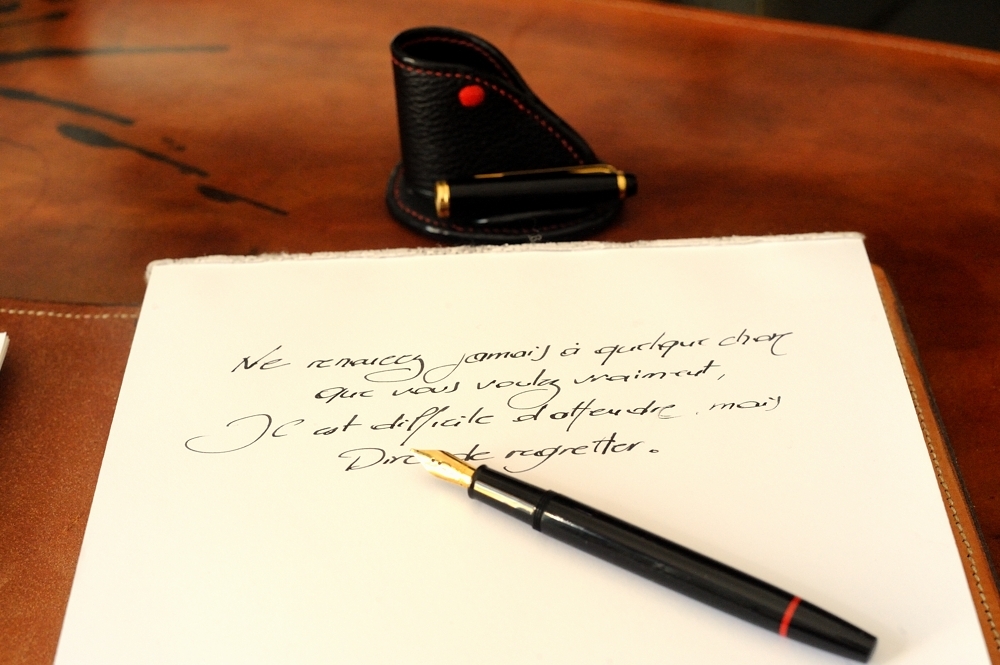 Ne renoncez jamais à quelque chose
que vous voulez vraiment,
Il est difficile d'attendre, mais
de regretter.